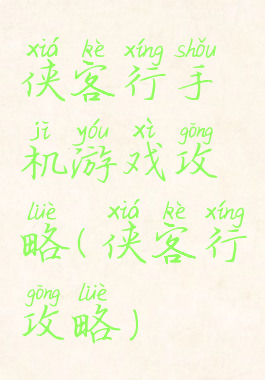 xiá kè xíng shǒu
侠客行手
jī yóu xì gōng
机游戏攻
lüè xiá kè xíng
略(侠客行
gōng lüè
攻略)